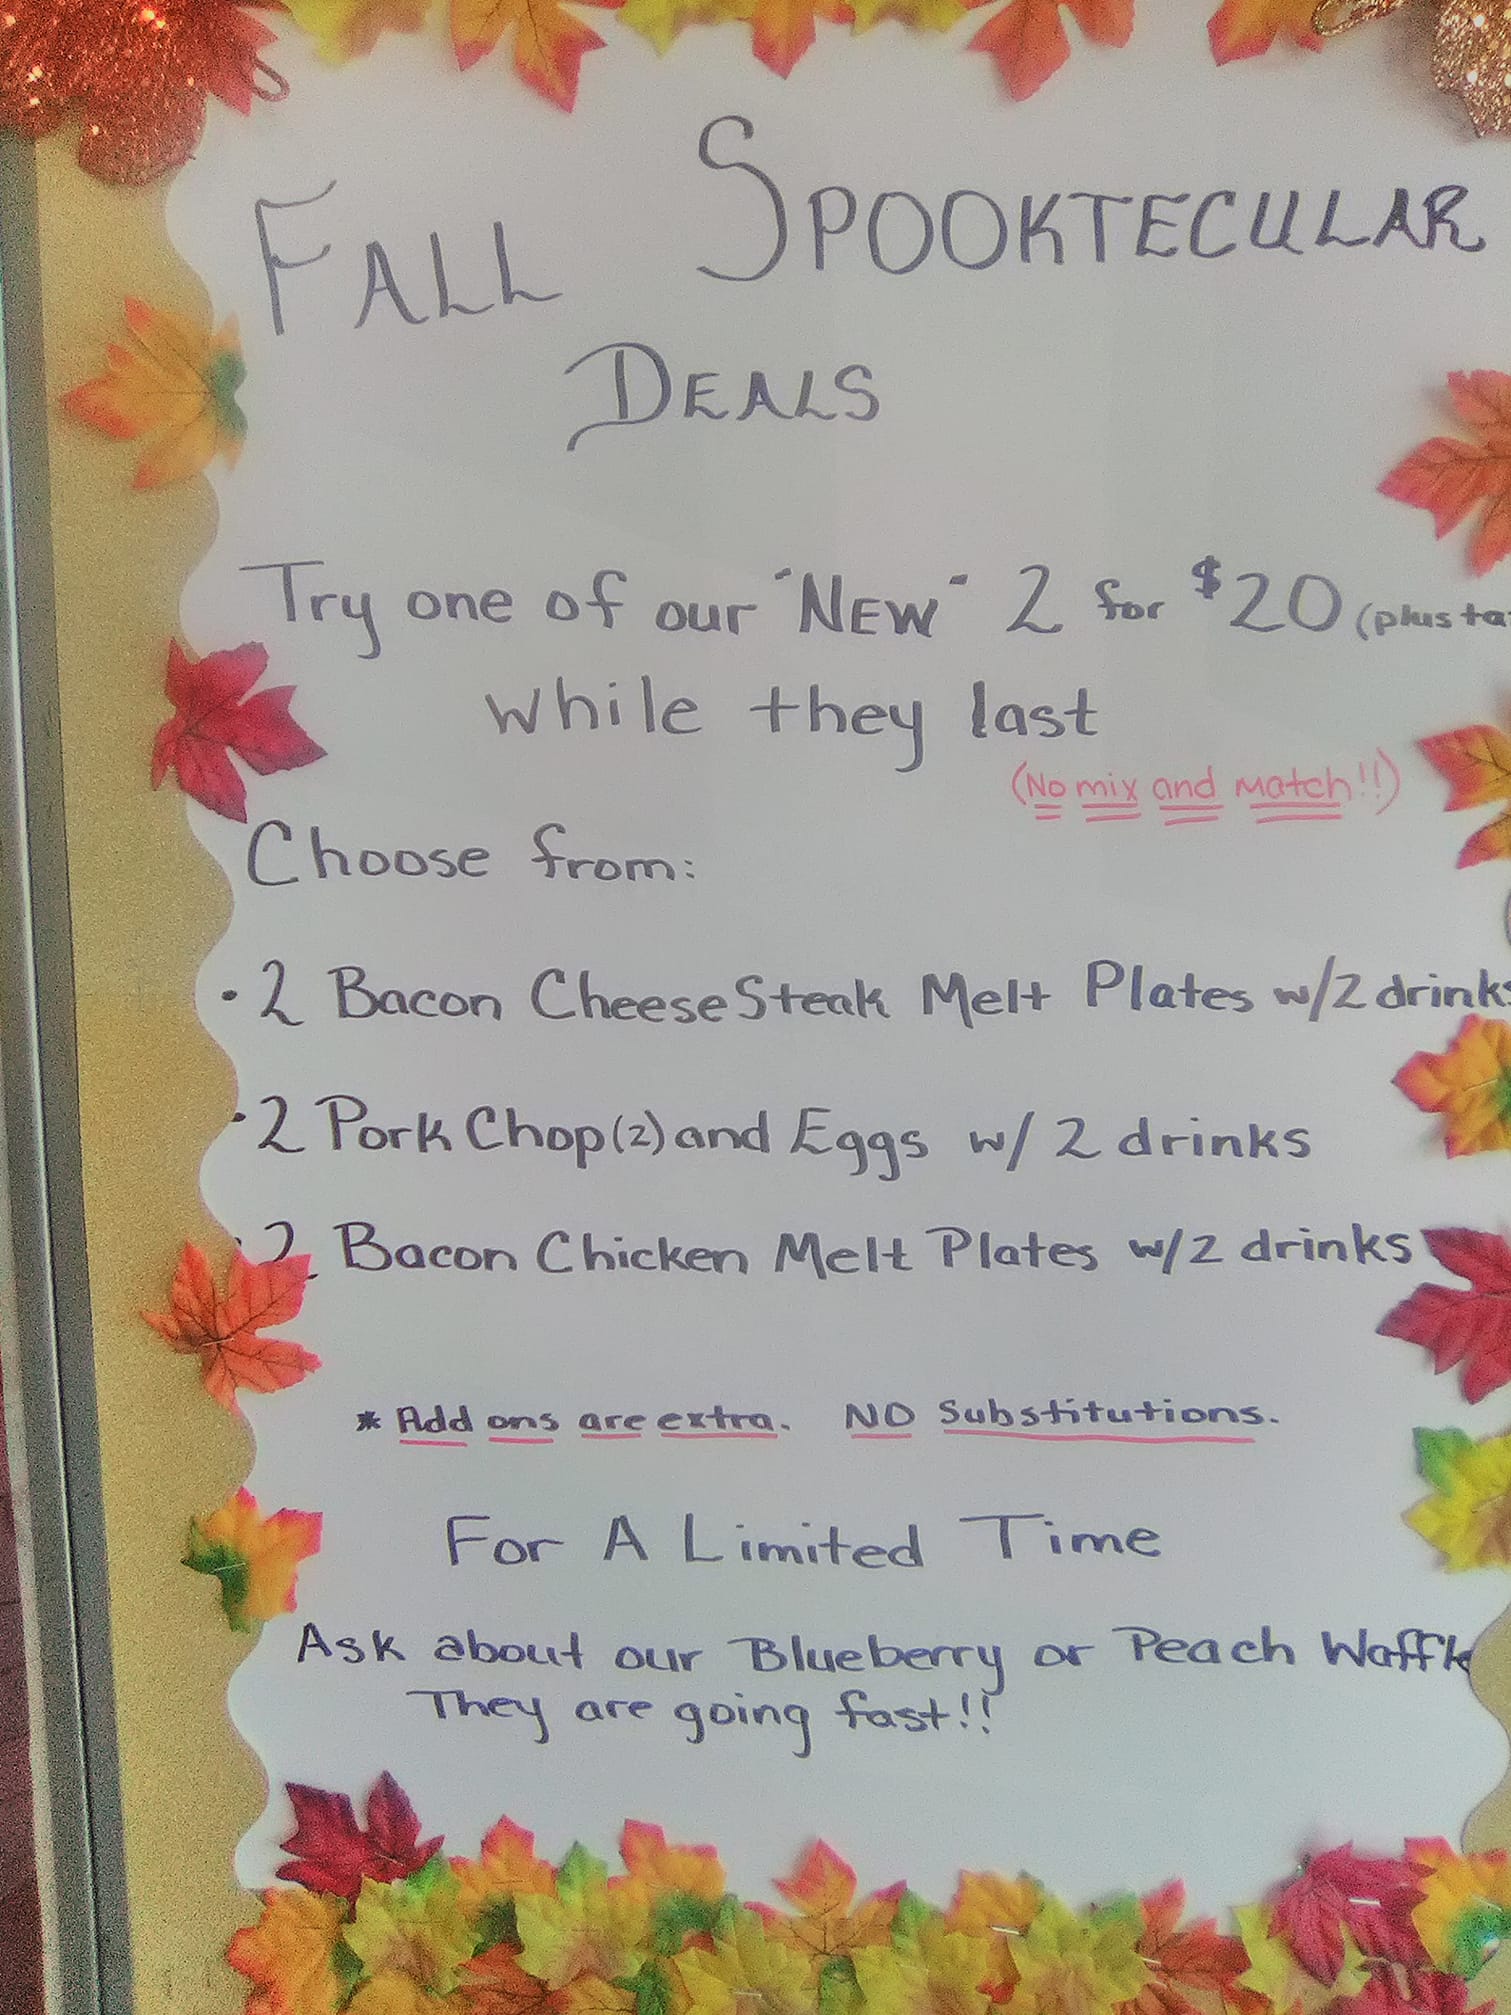 FALL SPOOKTECULAR
DEALS
Try one of our "NEW" 2 for $20 (plus ta
while they last
(No mix and match!!)
Choose from:
• 2 Bacon CheeseSteak Melt Plates w/2 drinks
• 2 Pork Chop(2) and Eggs w/ 2 drinks
• 2 Bacon Chicken Melt Plates w/2 drinks
* Add ons are extra. NO Substitutions.
For A Limited Time
Ask about our Blueberry or Peach Waffle
They are going fast!!